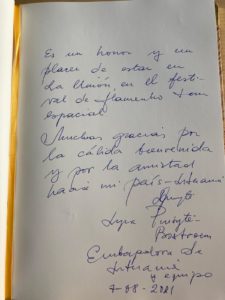 Es un honor y un
placer de estar en
La Unión, en el festi-
val de flamenco tan
especial
Muchas gracias por
la cálida bienvenida
y por la amistad
hacia mi país - Lituania
Lyra Puišytė-
Bostroem
Embajadora de
Lituania
y equipo
7-08-2021